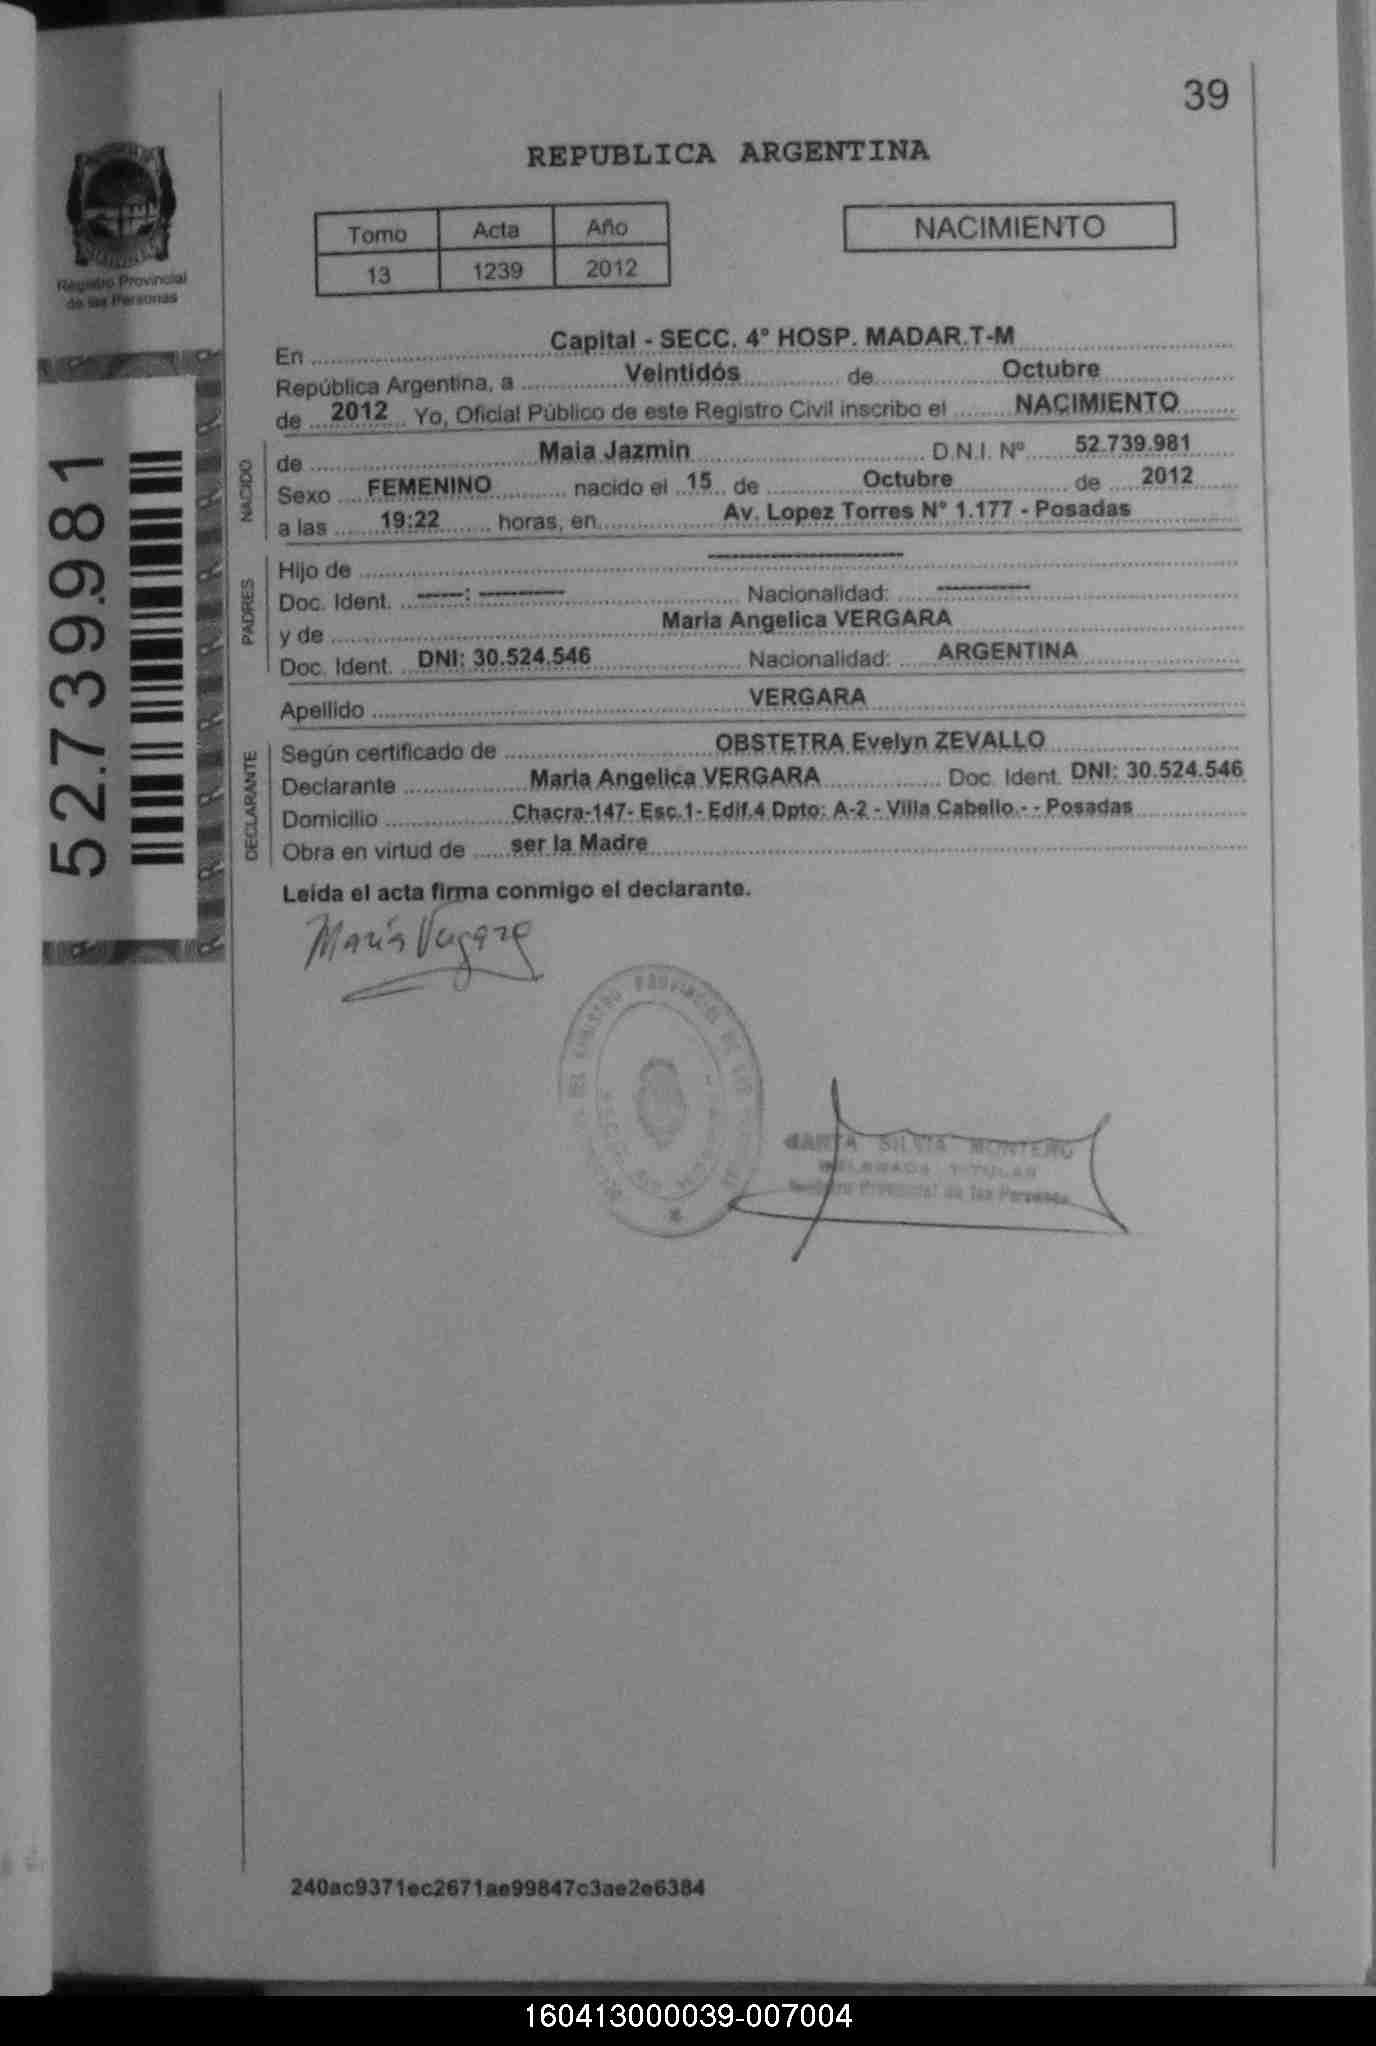 39
REPUBLICA ARGENTINA
Tomo Acta Año
13 1239 2012
NACIMIENTO
Registro Provincial
de las Personas
52.739.981
En Capital - SECC. 4° HOSP. MADAR.T-M
República Argentina, a Veintidós de Octubre
de 2012 Yo, Oficial Público de este Registro Civil inscribo el NACIMIENTO
NACIDO
de Maia Jazmin D.N.I. Nº 52.739.981
Sexo FEMENINO nacido el 15 de Octubre de 2012
a las 19:22 horas, en Av. Lopez Torres N° 1.177 - Posadas
PADRES
Hijo de ----------
Doc. Ident. -----: ---------- Nacionalidad: ----------
y de Maria Angelica VERGARA
Doc. Ident. DNI: 30.524.546 Nacionalidad: ARGENTINA
Apellido VERGARA
DECLARANTE
Según certificado de OBSTETRA Evelyn ZEVALLO
Declarante Maria Angelica VERGARA Doc. Ident. DNI: 30.524.546
Domicilio Chacra-147- Esc.1- Edif.4 Dpto: A-2 - Villa Cabello.- - Posadas
Obra en virtud de ser la Madre
Leída el acta firma conmigo el declarante.
María Vergara
DEL REGISTRO PROVINCIAL DE LAS
SILVIA MONTERO
DELEGADA TITULAR
Registro Provincial de las Personas
240ac9371ec2671ae99847c3ae2e6384
160413000039-007004